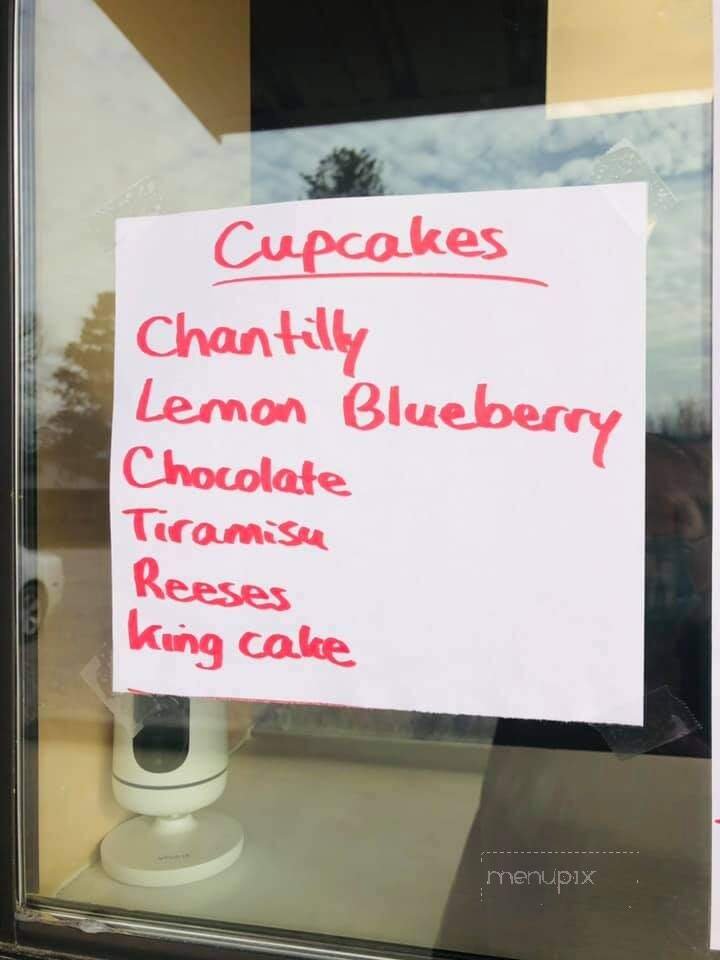 Cupcakes
Chantilly
Lemon Blueberry
Chocolate
Tiramisu
Reeses
King cake
menupix